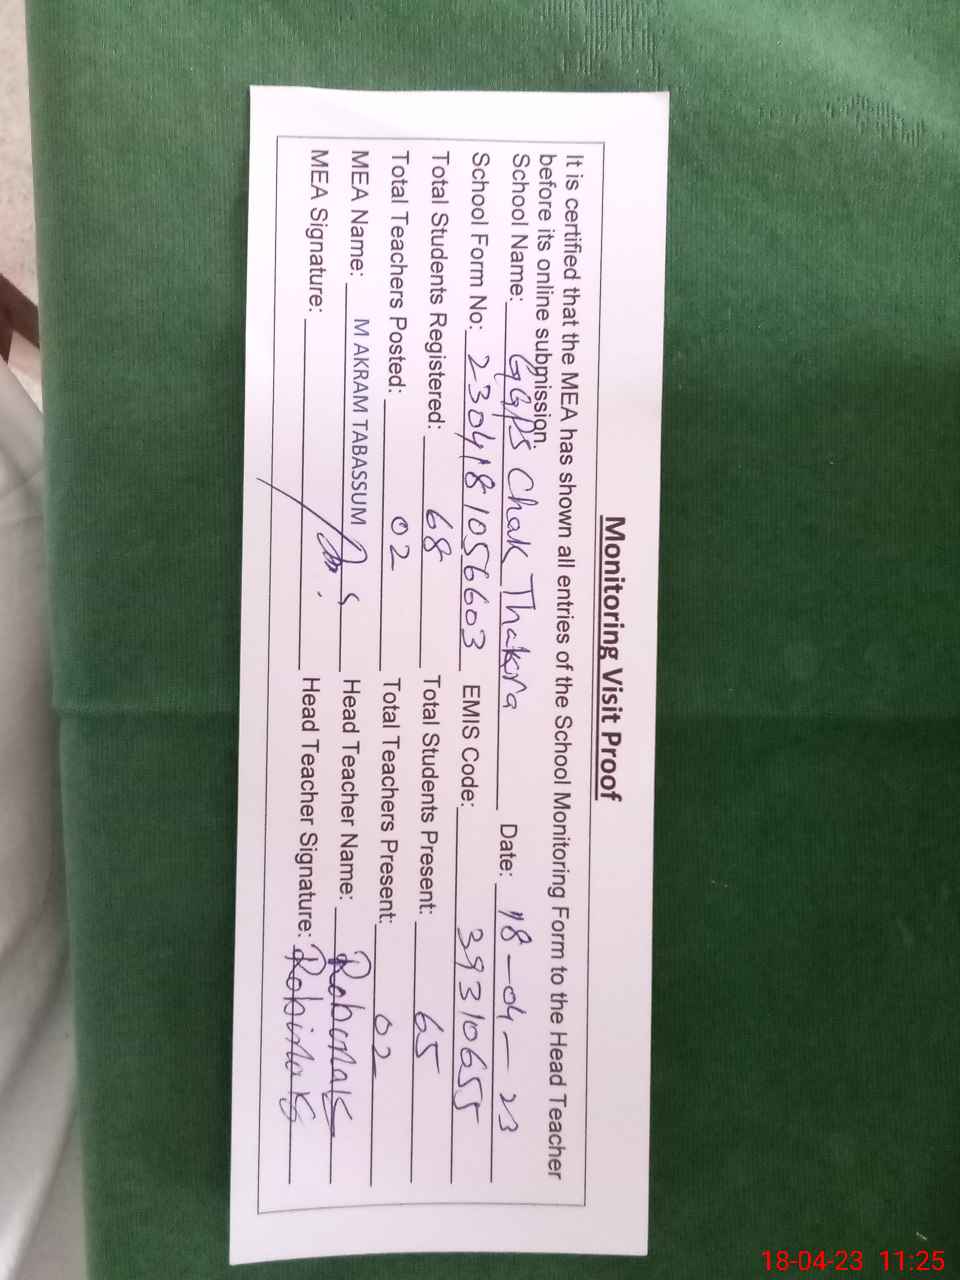 Monitoring Visit Proof
It is certified that the MEA has shown all entries of the School Monitoring Form to the Head Teacher
before its online submission.
School Name: GGPS Chak Thakra Date: 18-04-23
School Form No: 230418 1056603 EMIS Code: 39310655
Total Students Registered: 68 Total Students Present: 65
Total Teachers Posted: 02 Total Teachers Present: 02
MEA Name: M AKRAM TABASSUM Head Teacher Name:
MEA Signature: Head Teacher Signature:
18-04-23 11:25